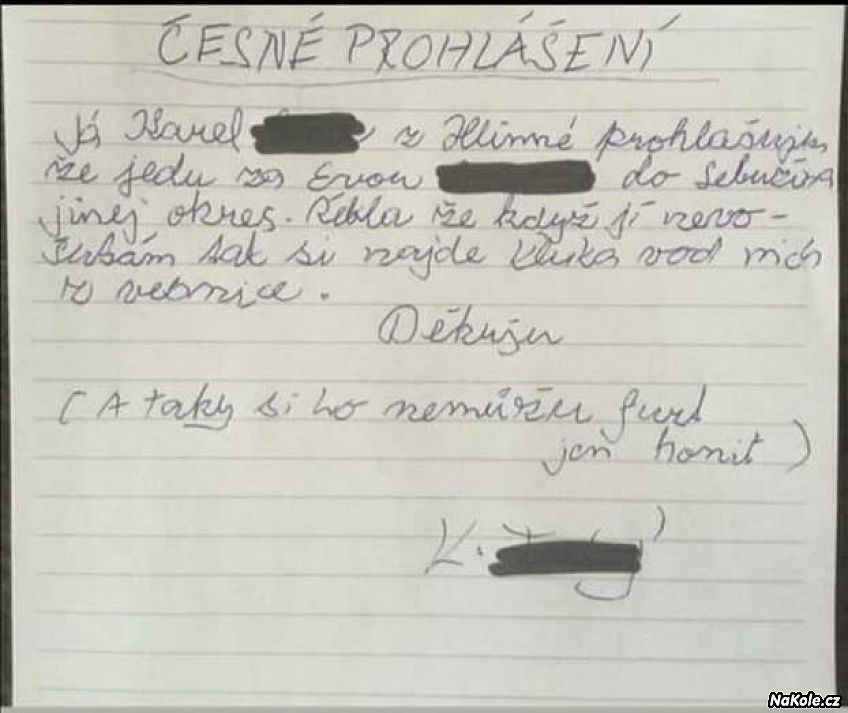 ČESNÉ PROHLÁŠENÍ
Já Karel z Hlinné prohlašuju
že jedu za Evou do Sebučína
jinej okres. Řekla že když jí nevo-
šukám tak si najde kluka vod nich
z vesnice.
Děkuju
(A taky si ho nemůžu furt
jen honit)
K.
NaKole.cz